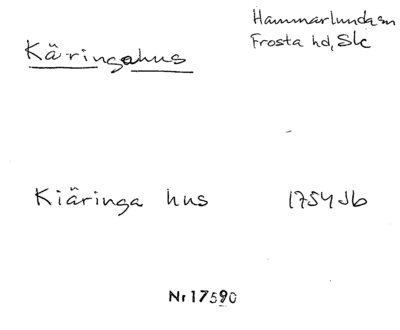 Hammarlunda sn
Frosta hd, Sk
Käringahus
Kiäringa hus 1754 Jb
Nr 17590